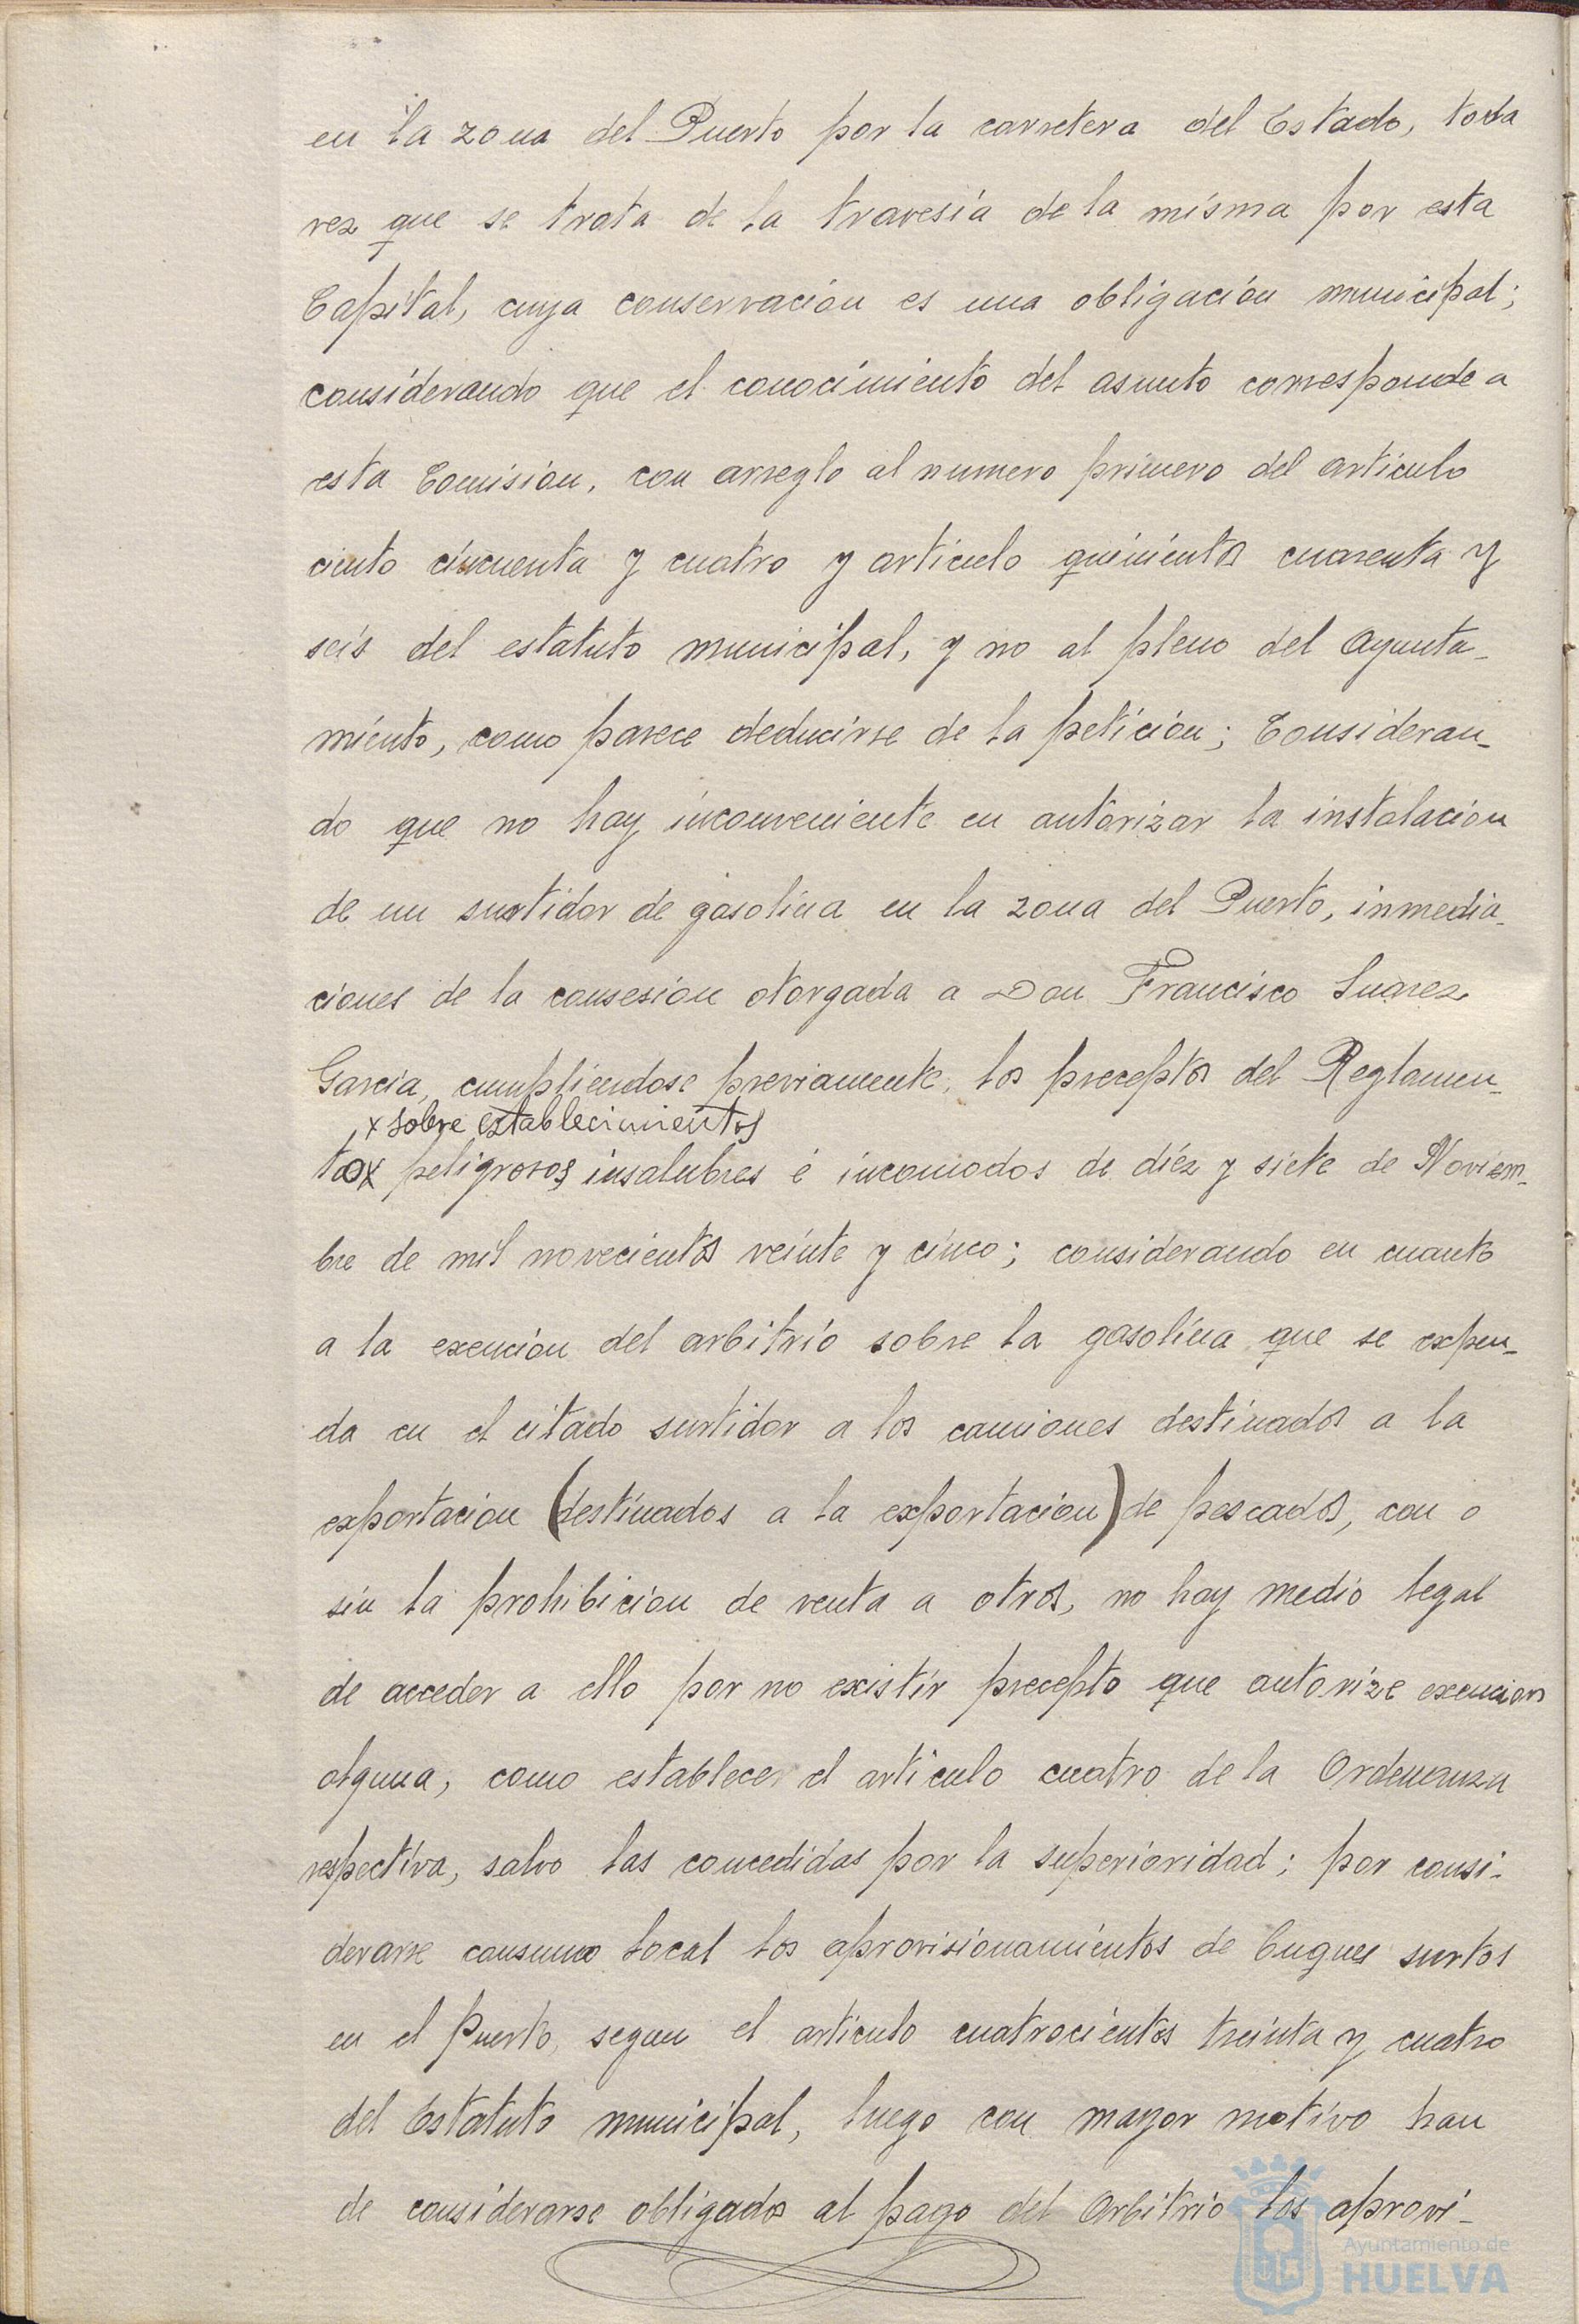 en la zona del Puerto por la carretera del Estado, toda
vez que se trata de la travesía de la misma por esta
Capital, cuya conservacion es una obligación municipal;
considerando que el conocimiento del asunto corresponde a
esta Comision, con arreglo al numero primero del articulo
ciento cincuenta y cuatro y articulo quinientos cuarenta y
seis del estatuto municipal, y no al pleno del Ayunta-
miento, como parece deducirse de la petición; Consideran-
do que no hay inconveniente en autorizar la instalacion
de un surtidor de gasolina en la zona del Puerto, inmedia-
ciones de la consesion otorgada a Don Francisco Suarez
Garcia, cumpliendose previamente, los preceptos del Reglamen-
x sobre establecimientos
tox peligrosos insalubres é incomodos de diéz y siete de Noviem-
bre de mil novecientos veinte y cinco; considerando en cuanto
a la exencion del arbitrio sobre la gasolina que se expen-
da en el citado surtidor a los camiones destinados a la
exportacion (destinados a la exportacion) de pescados, con o
sin la prohibicion de venta a otros, no hay medio legal
de acceder a ello por no existir precepto que autorize exencion
alguna, como establece el articulo cuatro de la Ordenanza
respectiva, salvo las concedidas por la superioridad; por consi-
derarse consumo local los aprovisionamientos de buques surtos
en el Puerto, segun el articulo cuatrocientos treinta y cuatro
del Estatuto municipal, luego con mayor motivo han
de considerarse obligados al pago del Arbitrio los aprovi-
Ayuntamiento de
HUELVA